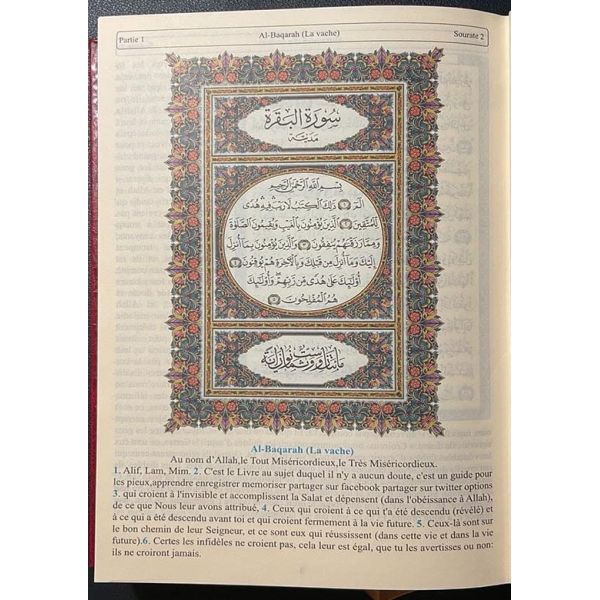 Partie 1
Al-Baqarah (La vache)
Sourate 2
سُورَةُ البَقَرَةِ
مَدَنِيَّة
بِسْمِ اللَّهِ الرَّحْمَٰنِ الرَّحِيمِ
الٓمٓ ذَٰلِكَ الْكِتَٰبُ لَا رَيْبَ فِيهِ هُدًى
لِّلْمُتَّقِينَ الَّذِينَ يُؤْمِنُونَ بِالْغَيْبِ وَيُقِيمُونَ الصَّلَوٰةَ
وَمِمَّا رَزَقْنَٰهُمْ يُنفِقُونَ وَالَّذِينَ يُؤْمِنُونَ بِمَا أُنزِلَ
إِلَيْكَ وَمَا أُنزِلَ مِن قَبْلِكَ وَبِالْآخِرَةِ هُمْ يُوقِنُونَ
أُولَٰئِكَ عَلَىٰ هُدًى مِّن رَّبِّهِمْ وَأُولَٰئِكَ
هُمُ الْمُفْلِحُونَ
مائتان وست وثمانون آية
Al-Baqarah (La vache)
Au nom d'Allah,le Tout Miséricordieux,le Très Miséricordieux.
1. Alif, Lam, Mim. 2. C'est le Livre au sujet duquel il n'y a aucun doute, c'est un guide pour
les pieux,apprendre enregistrer memoriser partager sur facebook partager sur twitter options
3. qui croient à l'invisible et accomplissent la Salat et dépensent (dans l'obéissance à Allah),
de ce que Nous leur avons attribué, 4. Ceux qui croient à ce qui t'a été descendu (révélé) et
à ce qui a été descendu avant toi et qui croient fermement à la vie future. 5. Ceux-là sont sur
le bon chemin de leur Seigneur, et ce sont eux qui réussissent (dans cette vie et dans la vie
future).6. Certes les infidèles ne croient pas, cela leur est égal, que tu les avertisses ou non:
ils ne croiront jamais.